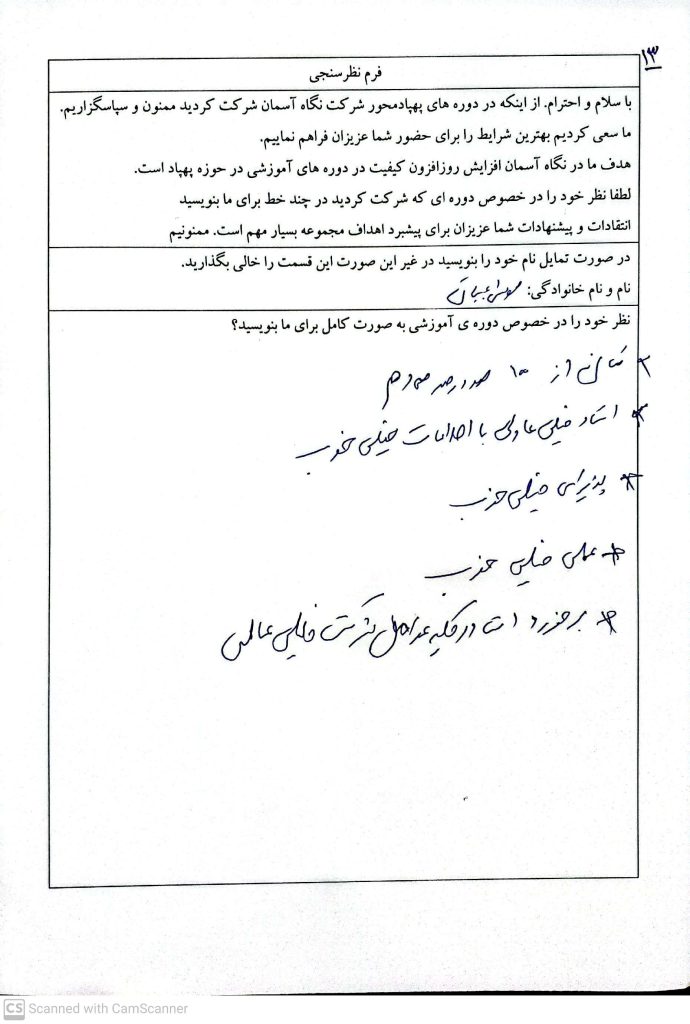 ۱۳
فرم نظرسنجی
با سلام و احترام. از اینکه در دوره های پهپادمحور شرکت نگاه آسمان شرکت کردید ممنون و سپاسگزاریم.
ما سعی کردیم بهترین شرایط را برای حضور شما عزیزان فراهم نماییم.
هدف ما در نگاه آسمان افزایش روزافزون کیفیت در دوره های آموزشی در حوزه پهپاد است.
لطفا نظر خود را در خصوص دوره ای که شرکت کردید در چند خط برای ما بنویسید
انتقادات و پیشنهادات شما عزیزان برای پیشبرد اهداف مجموعه بسیار مهم است. ممنونیم
در صورت تمایل نام خود را بنویسید در غیر این صورت این قسمت را خالی بگذارید.
نام و نام خانوادگی:
نظر خود را در خصوص دوره ی آموزشی به صورت کامل برای ما بنویسید؟
از ۱۰۰ صد درصد میدهم
* استاد خیلی عالی با اطلاعات خیلی خوب
* پذیرایی خیلی خوب
* عملی خیلی خوب
* برخورد استاد و کلیه عوامل شرکت خیلی عالی
CS Scanned with CamScanner